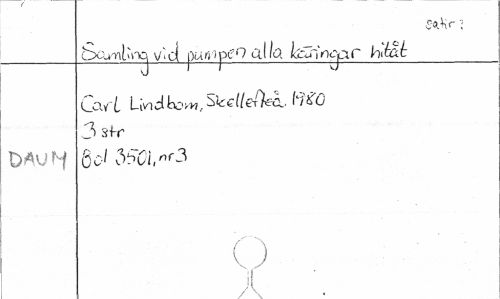 satir?
Samling vid pumpen alla käringar hitåt
Carl Lindbom, Skellefteå. 1980
3 str
DAUM Bd 3501, nr 3